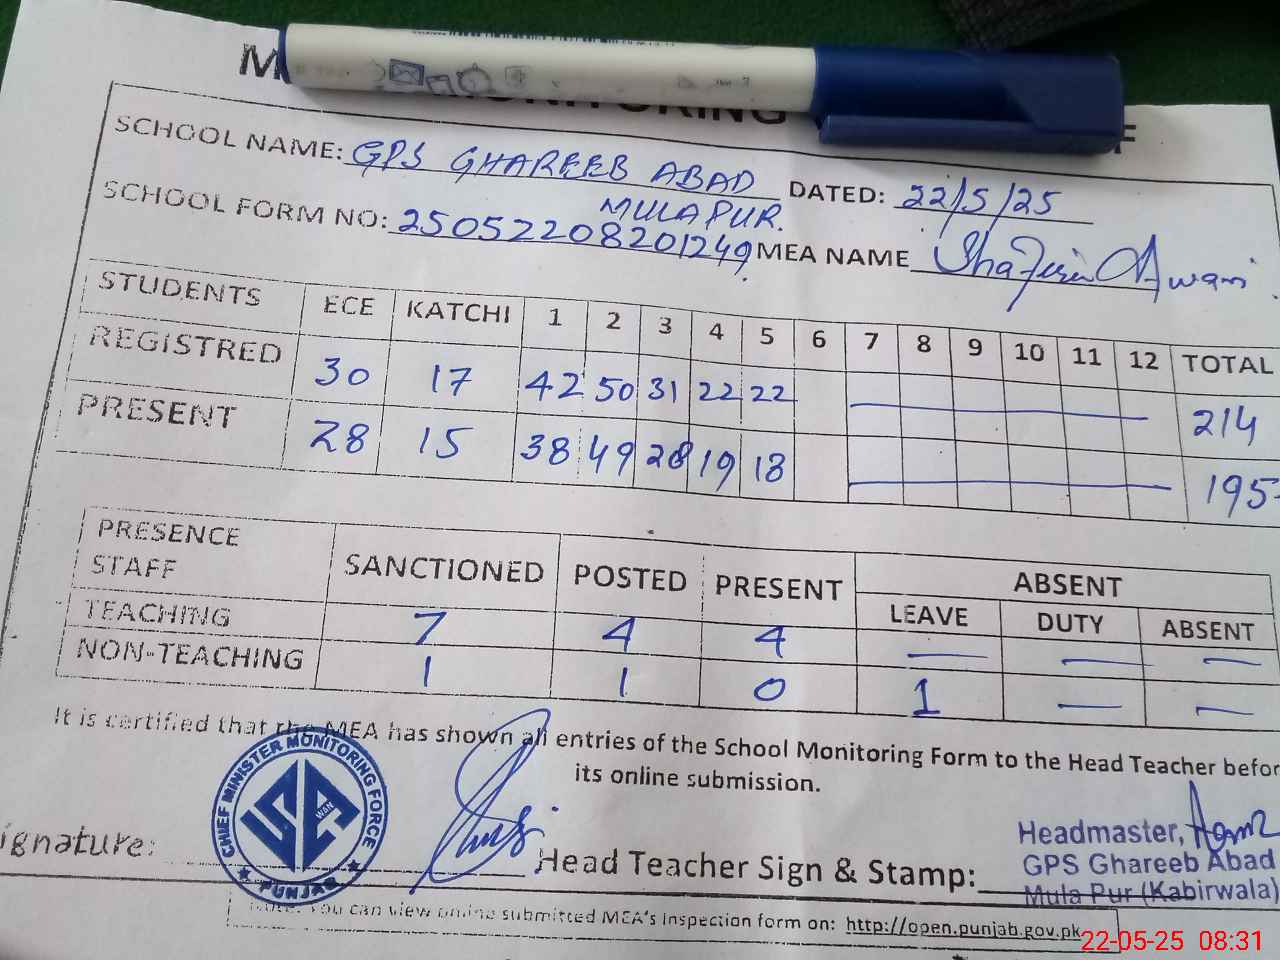 SCHOOL NAME: GPS GHAREEB ABAD DATED: 22/5/25
MULAPUR.
SCHOOL FORM NO: 250522208201249 MEA NAME Awan
STUDENTS ECE KATCHI 1 2 3 4 5 6 7 8 9 10 11 12 TOTAL
REGISTRED 30 17 42 50 31 22 22 214
PRESENT 28 15 38 49 28 19 18 195
PRESENCE
STAFF SANCTIONED POSTED PRESENT ABSENT
LEAVE DUTY ABSENT
TEACHING 7 4 4 — — —
NON-TEACHING 1 1 0 1 — —
It is certified that the MEA has shown all entries of the School Monitoring Form to the Head Teacher befor
its online submission.
CHIEF MINISTER MONITORING FORCE
PUNJAB
ignature:
Head Teacher Sign & Stamp:
Headmaster,
GPS Ghareeb Abad
Mula Pur (Kabirwala)
Note: You can view online submitted MEA's inspection form on: http://open.punjab.gov.pk
22-05-25 08:31